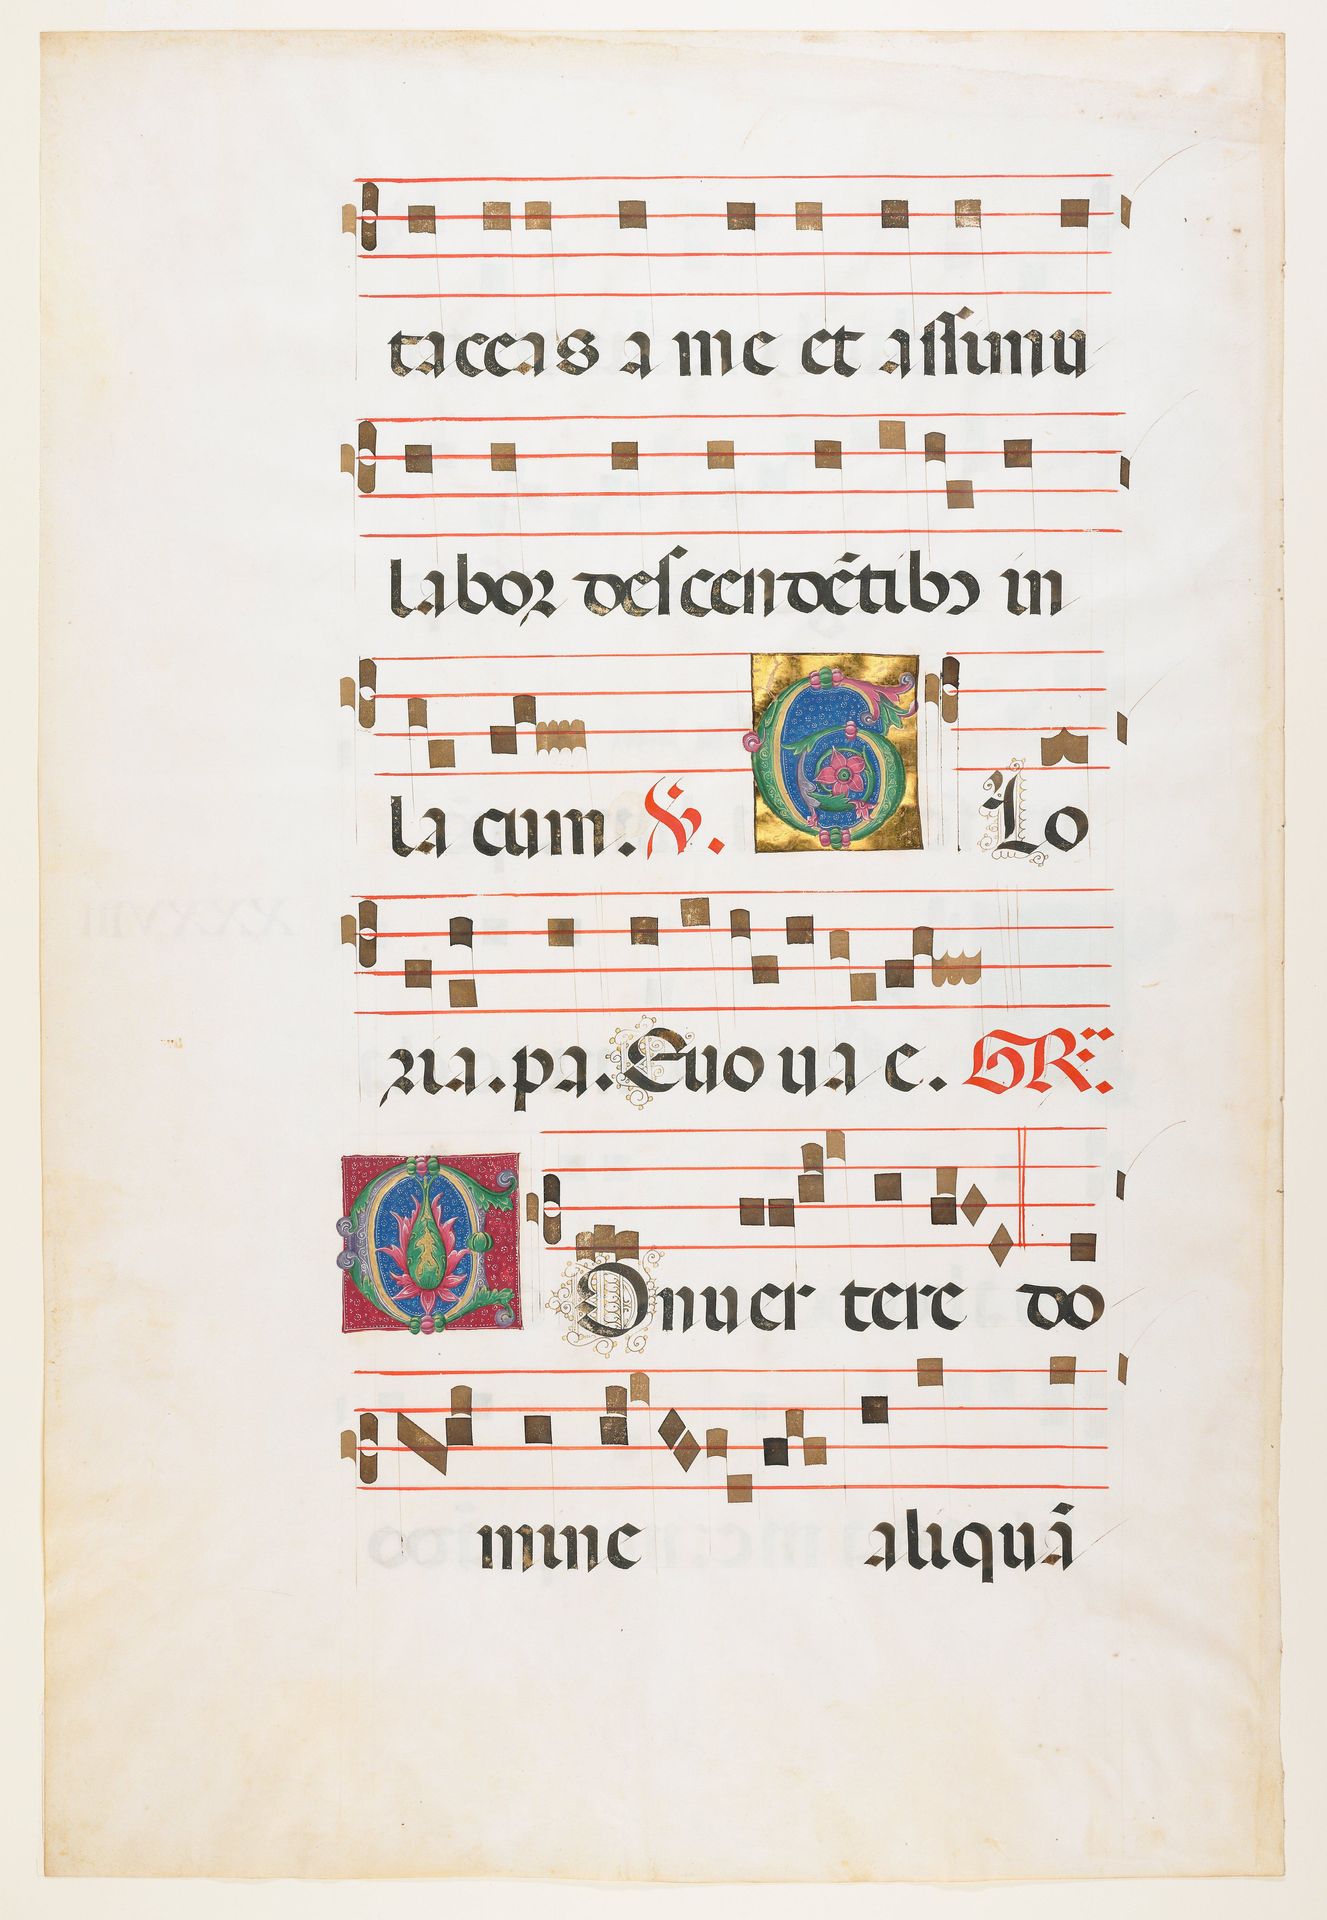 taceas a me et assimu
labor descendētibꝰ in
la cum. ℣. G Lo
ria. pa. Euo u a e. GR̃.
C Onuer tere do
mine aliquā